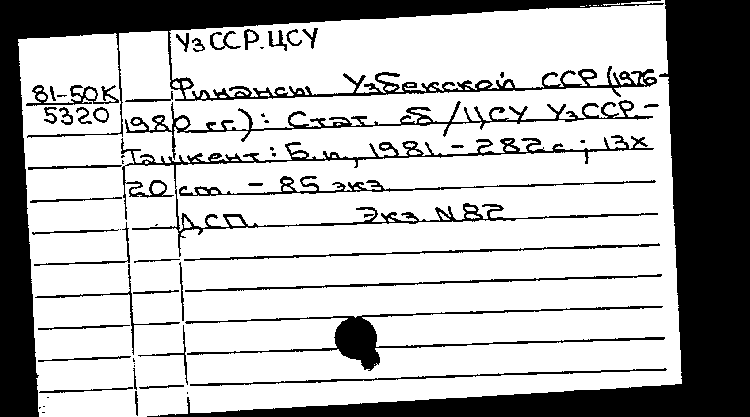 УзССР.ЦСУ
81-50К
5320
Финансы Узбекской ССР (1976-
1980 гг.): Стат. сб/ЦСУ УзССР.-
Ташкент: Б.и., 1981.-282с; 13х
20 см. - 85 экз.
ДСП. Экз. N82